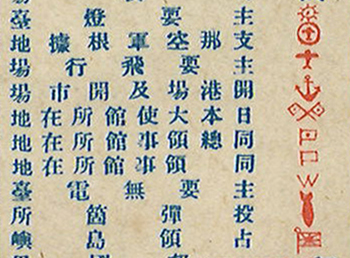 主要燈臺
支那空軍根據地
主要飛行場
開港場及開市場
日本大使館所在地
同總領事館所在地
同領事館所在地
主要無電臺
投彈箇所
占領島嶼